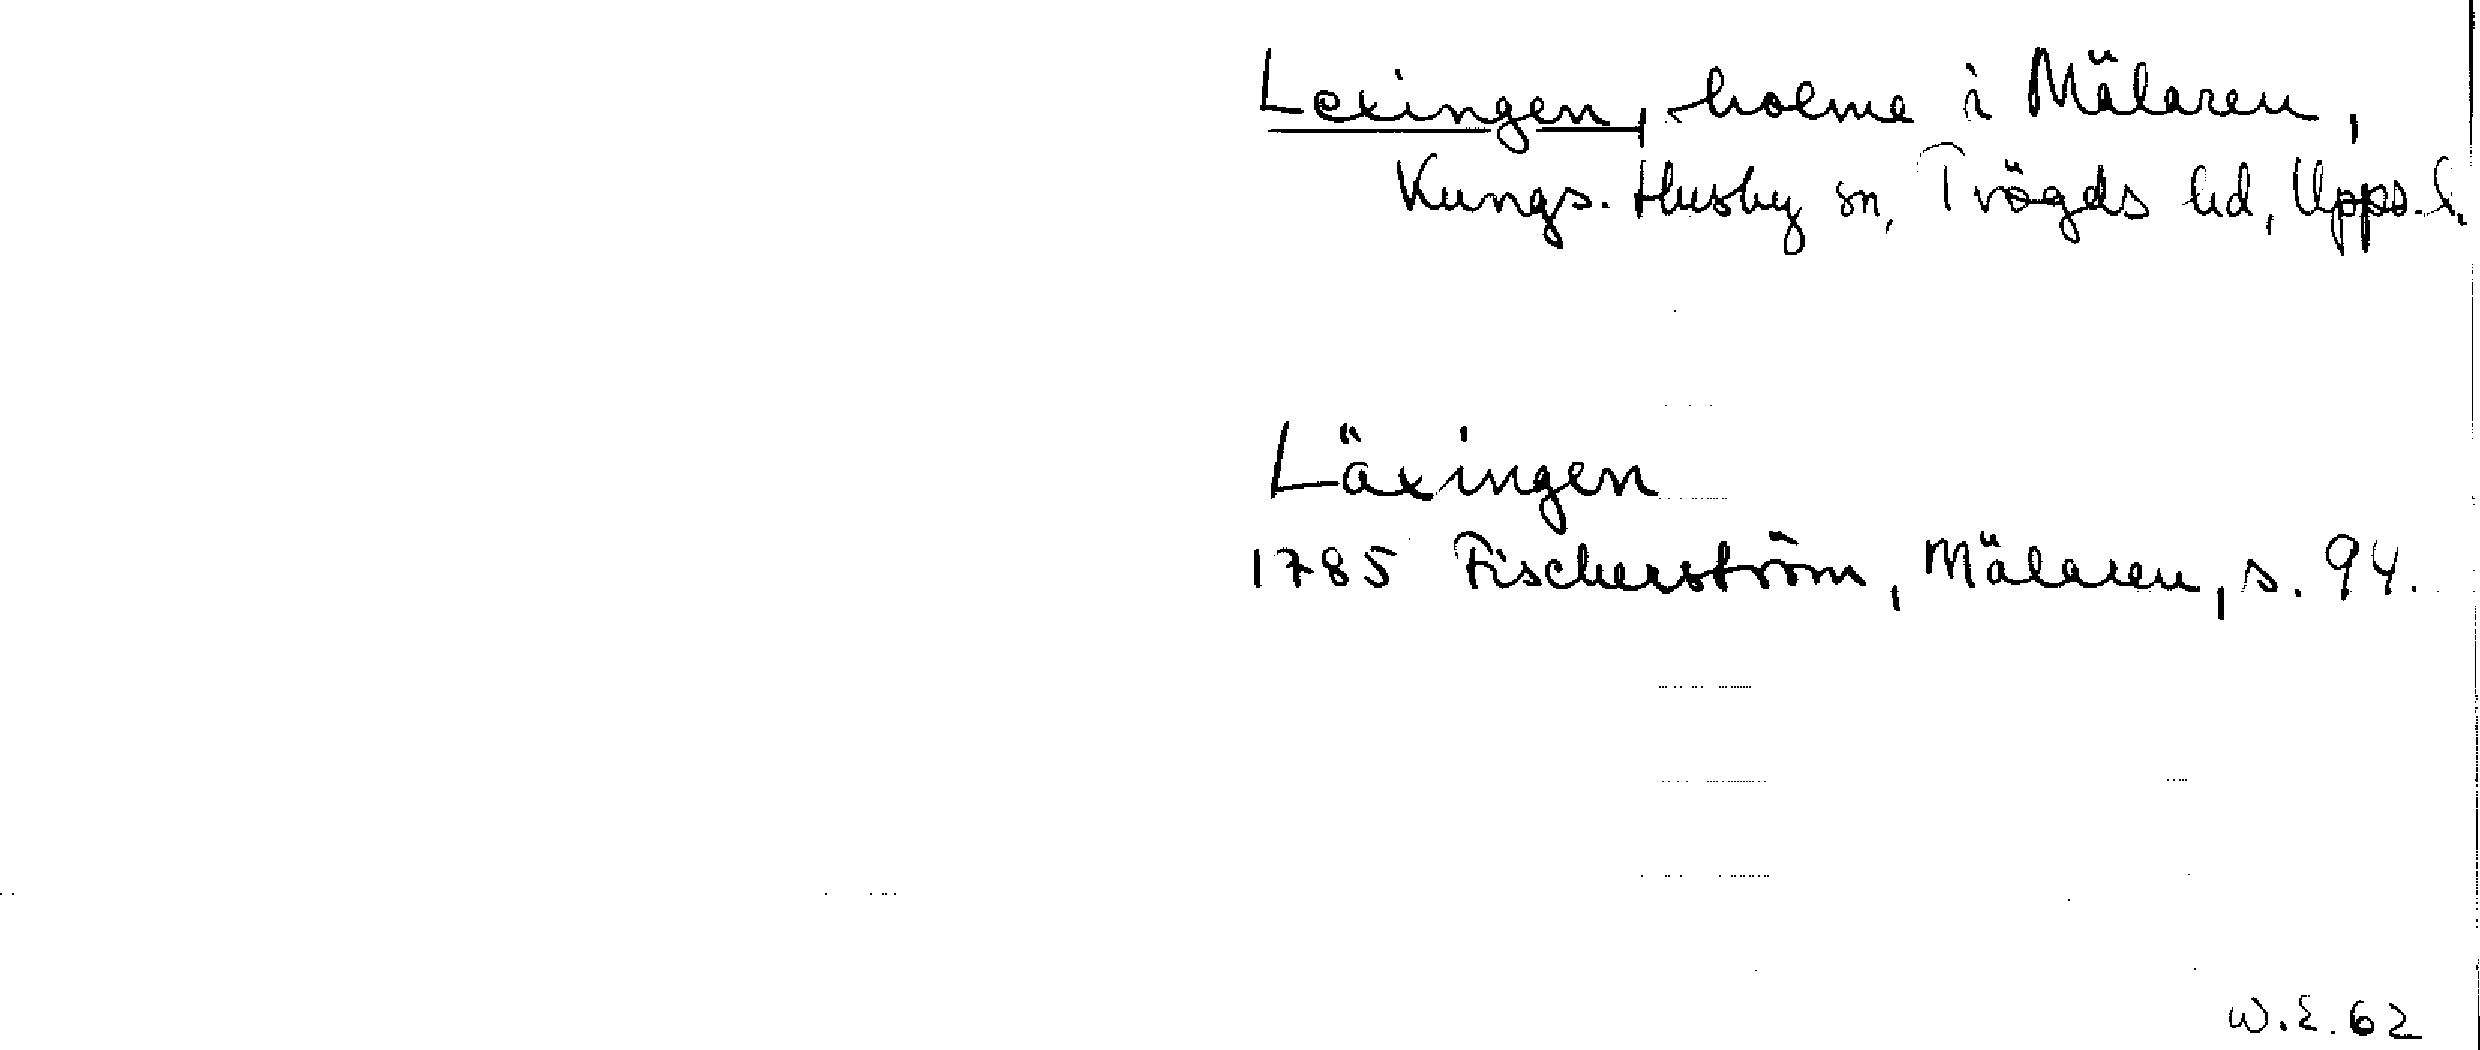 Lexingen, holme i Mälaren,
Kungs-Husby sn, Trögds hd, Upps. l.
Läxingen
1785 Fischerström, Mälaren, s. 94.
W.E. 62